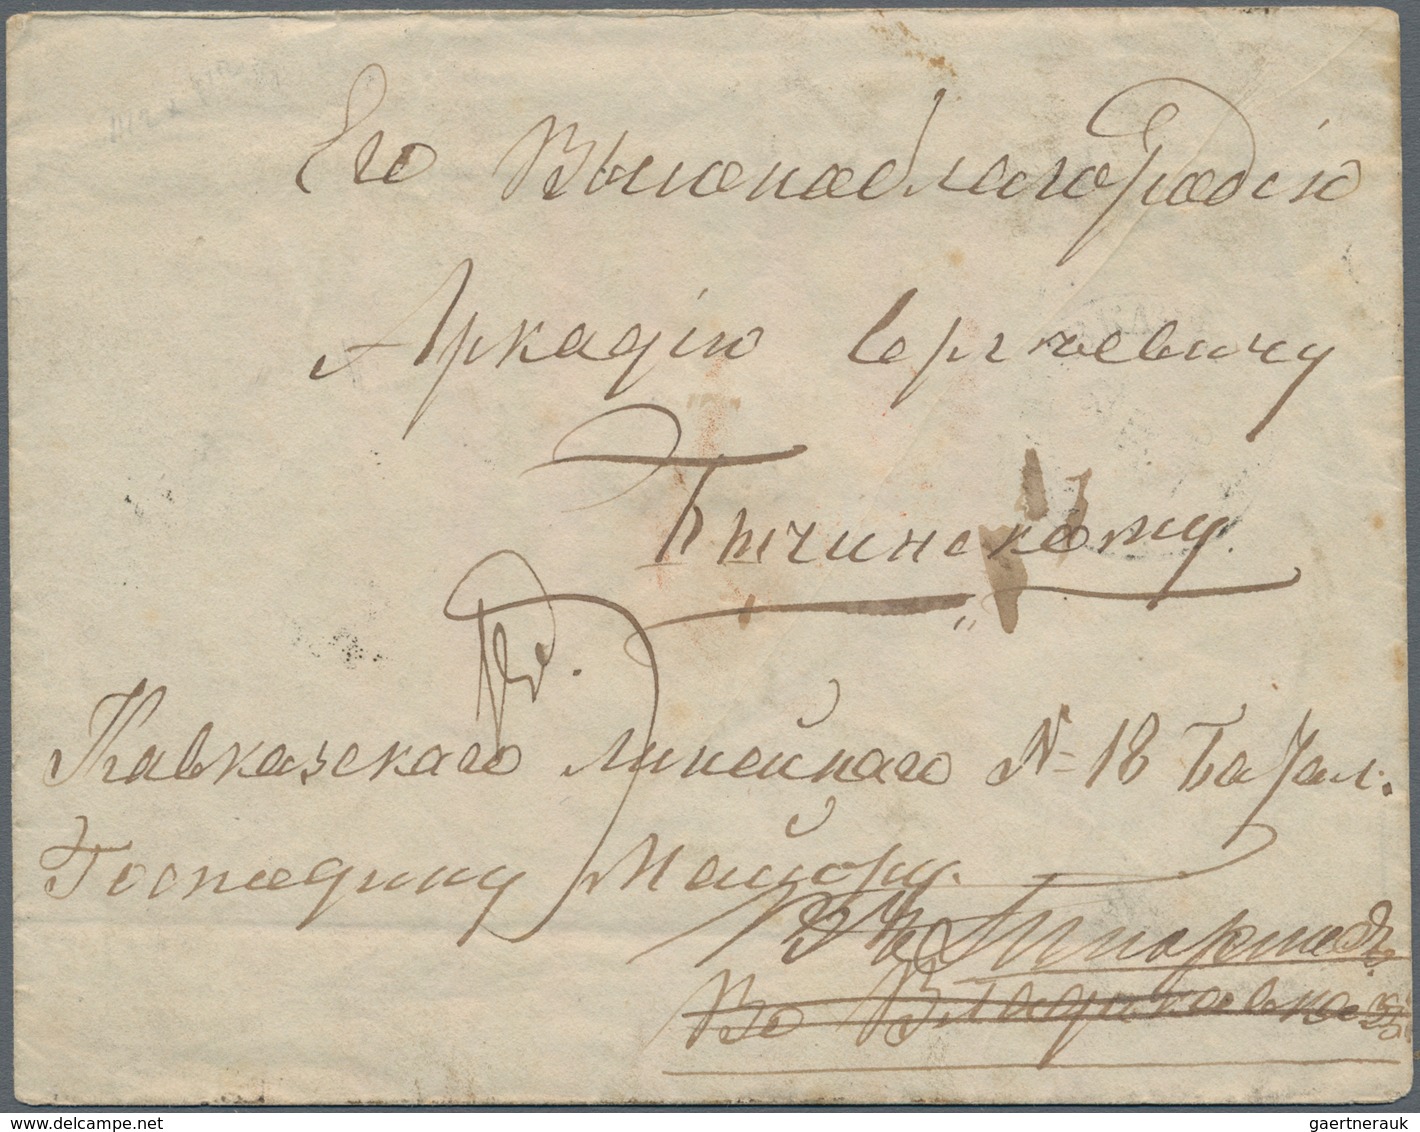 Его Высокоблагородію
Аркадію Сергѣевичу
Бѣтчинскому.
Кавказскаго Линейнаго № 18 Батал.
Господину Маіору.
Во Владикавказъ
gaertnerauk